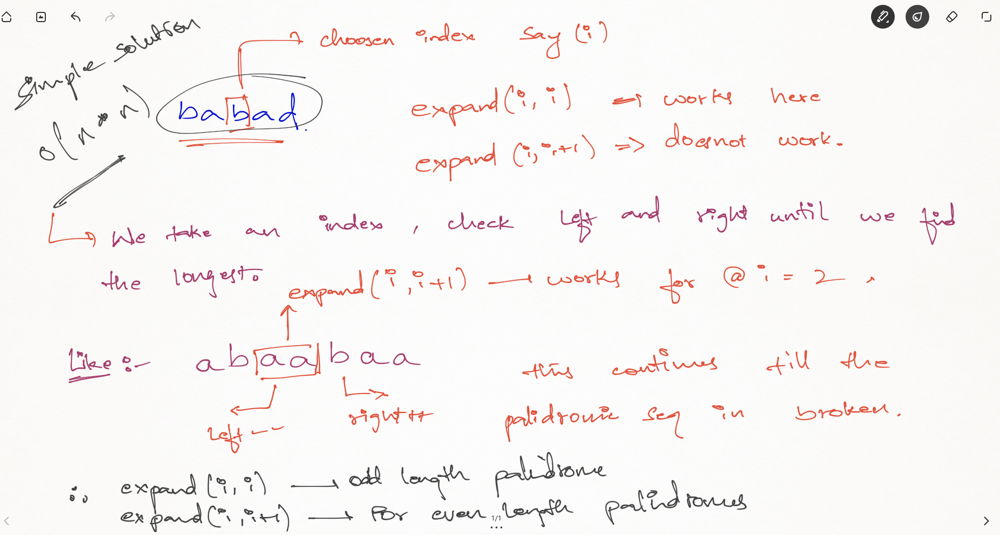 simple solution
o(n * n)
choosen index say (i)
babad.
expand(i, i) → works here
expand (i, i+1) => doesnot work.
We take an index, check left and right until we find
the longest.
expand(i, i+1) → works for @ i = 2.
Like :- abaabaa
left --
right++
this continues till the
palidromic seq in broken.
∴ expand (i, i) → odd length palidrome
expand(i, i+1) → For even length palidromes
1/1